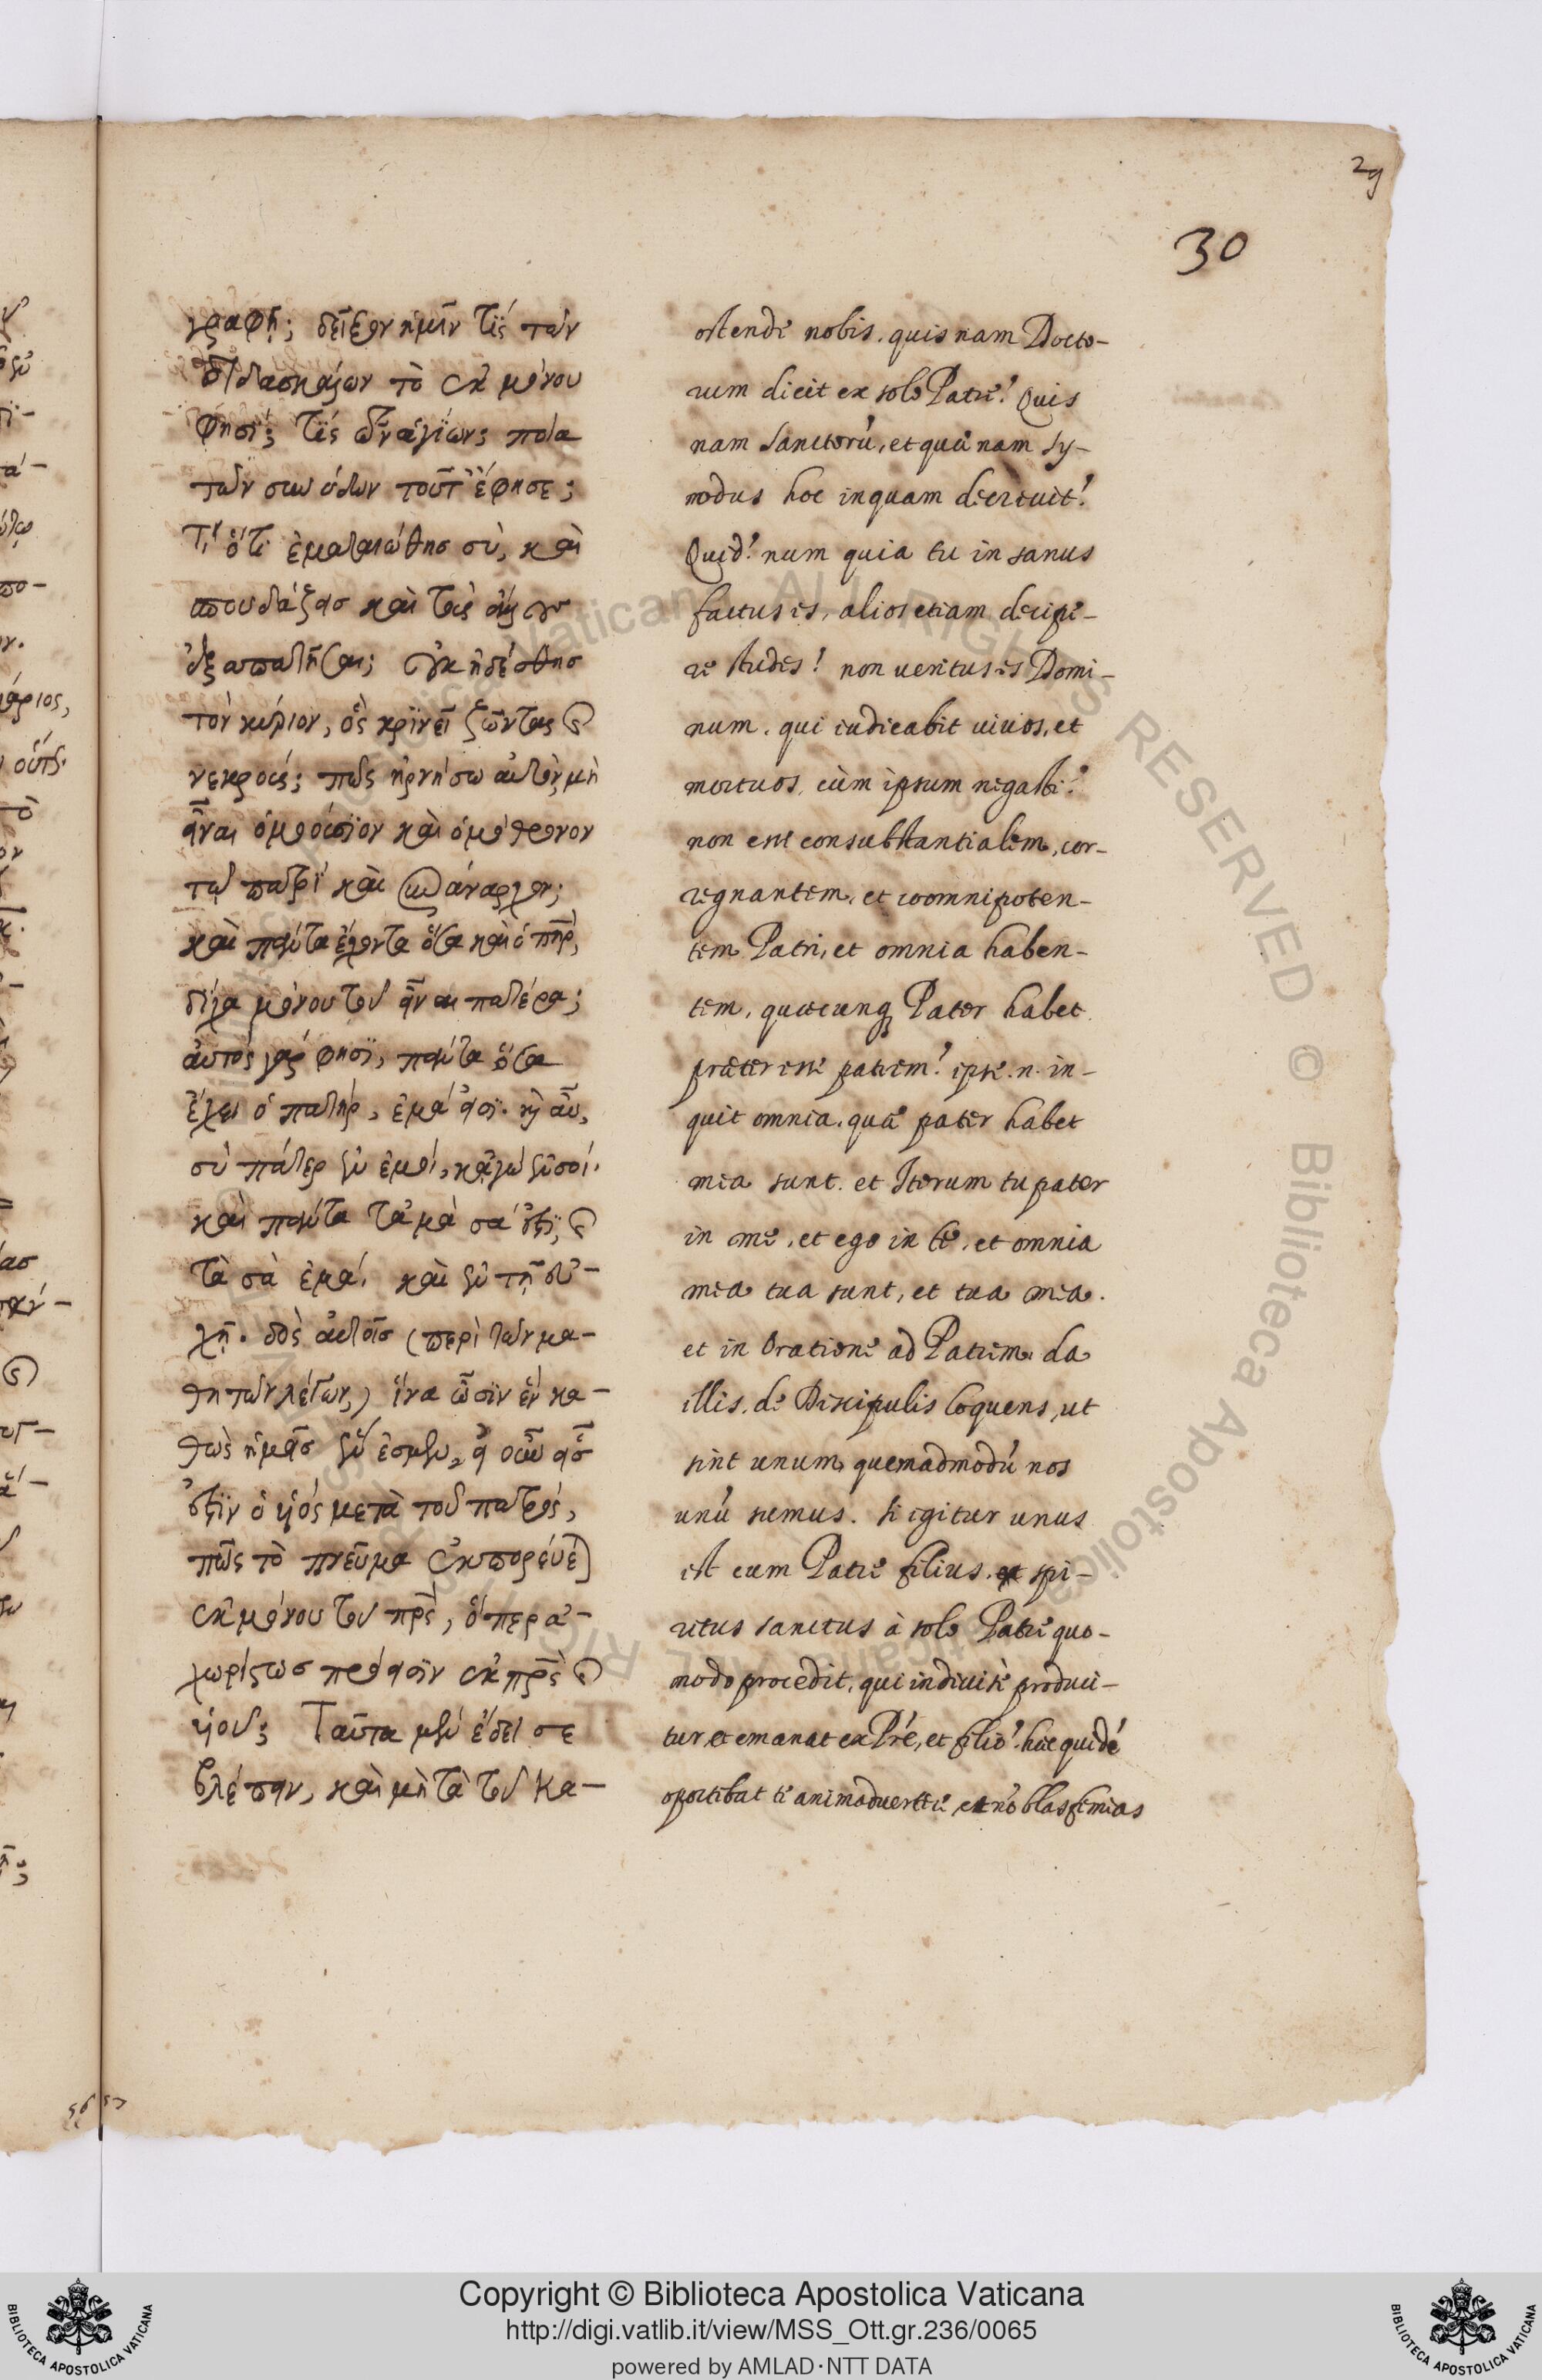 29
30
γραφή; δεῖξον ἡμῖν τίς τῶν
διδασκάλων τὸ ἐκ μόνου
φησί; τίς τῶν ἁγίων; ποία
τῶν συνόδων τοῦτ' ἔφησε;
Τί ὅτι ἐματαιώθησ σὺ, καὶ
σπουδάζεισ καὶ τοὺς
ἐξαπατῆσαι; οὐκ ᾐδέσθησ
τὸν κύριον, ὃς κρίνει ζῶντας καὶ
νεκρούς; πῶς ἠρνήσω αὐτὸν μὴ
εἶναι ὁμοούσιον καὶ ὁμόθρονον
τῷ πατρὶ καὶ συνάναρχον;
καὶ πάντα ἔχοντα ὅσα καὶ ὁ πηρ,
δίχα μόνου τοῦ εἶναι πατέρα;
αὐτὸς γάρ φησι, πάντα ὅσα
ἔχει ὁ πατὴρ, ἐμά εἰσι. κ αὖ,
σὺ πάτερ ἐν ἐμοί, κἀγὼ ἐν σοί.
καὶ πάντα τἀμὰ σά ἐστι, καὶ
τὰ σὰ ἐμά. καὶ ἐν τῇ εὐ-
χῇ. δὸς αὐτοῖσ (περὶ τῶν μα-
θητῶν λέγων,) ἵνα ὦσιν ἓν κα-
θὼς ἡμεῖσ ἕν ἐσμεν, εἰ οὖν εἷσ
ἐστιν ὁ υἱός μετὰ τοῦ πατρός,
πῶς τὸ πνεῦμα ἐκπορεύε
ἐκ μόνου τοῦ πρς, ὅπερ ἀ-
χωρίστωσ πρόεισιν ἐκ πρς καὶ
υἱοῦ; Ταῦτα μὲν ἔδει σε
βλέπειν, καὶ μὴ τὰ τοῦ Κα-
ostende nobis. quis nam Docto-
rum dicit ex solo Patre? Quis
nam sanctorũ, et quæ nam sy-
nodus hoc inquam decreuit?
Quid? num quia tu insanus
factus es, alios etiam decipe-
re studes? non ueritus es Domi-
num. qui iudicabit uiuos, et
mortuos, cùm ipsum negasti?
non esse consubstantialem, cor-
regnantem, et coomnipoten-
tem Patri, et omnia haben-
tem, quæcunq Pater habet
præter esse patrem? ipse .n. in-
quit omnia. quæ pater habet
mea sunt. et Iterum tu pater
in me, et ego in te, et omnia
mea tua sunt, et tua mea.
et in Oratione ad Patrem. da
illis, de Discipulis loquens, ut
sint unum quemadmodũ nos
unũ sumus. si igitur unus
est cum Patre filius. spi-
ritus sanctus à solo Patre quo-
modo procedit, qui indiuise produci-
tur, et emanat ex Pre, et filio? hæc quidẽ
oportebat te animaduertere, et nõ blasfemias
Copyright © Biblioteca Apostolica Vaticana
http://digi.vatlib.it/view/MSS_Ott.gr.236/0065
powered by AMLAD·NTT DATA